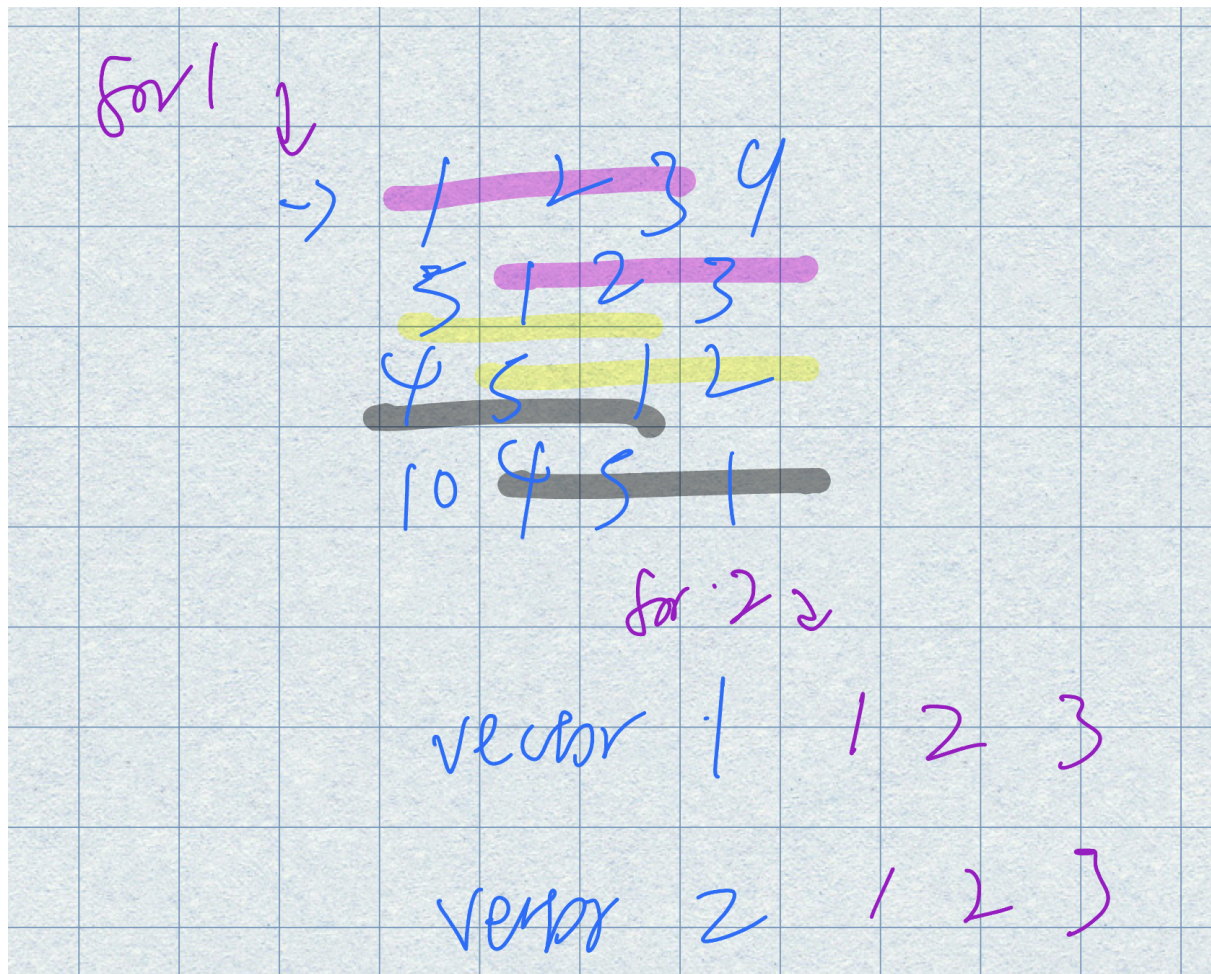 for 1 ↓
→ 1 2 3 4
5 1 2 3
4 5 1 2
10 4 5 1
for 2 ↓
vector 1 1 2 3
vector 2 1 2 3